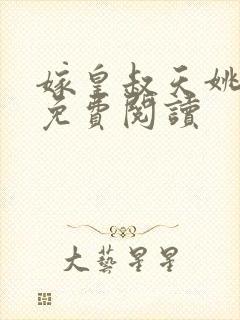 嫁皇叔天姚
免費閱讀
大藝星星